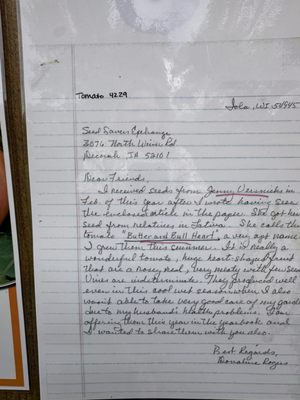 Tomato 4229
Iola, WI 54945
Seed Savers Exchange
3076 North Winn Rd
Decorah IA 52101
Dear Friends,
I received seeds from Jenny Versnicks in
Feb. of this year after I wrote having seen
the enclosed article in the paper. She got her
seed from relatives in Latvia. She calls the
tomato "Buttered Bull Heart", a very apt name.
I grew them this summer. It is really a
wonderful tomato, huge heart-shaped fruit
that are a rosey red, very meaty with few seeds.
Vines are indeterminate. They produced well
even in this cool wet season when I also
wasn't able to take very good care of my garden
due to my husband's health problems. I am
offering them this year in the yearbook and
I wanted to share them with you also.
Best Regards,
Rogers